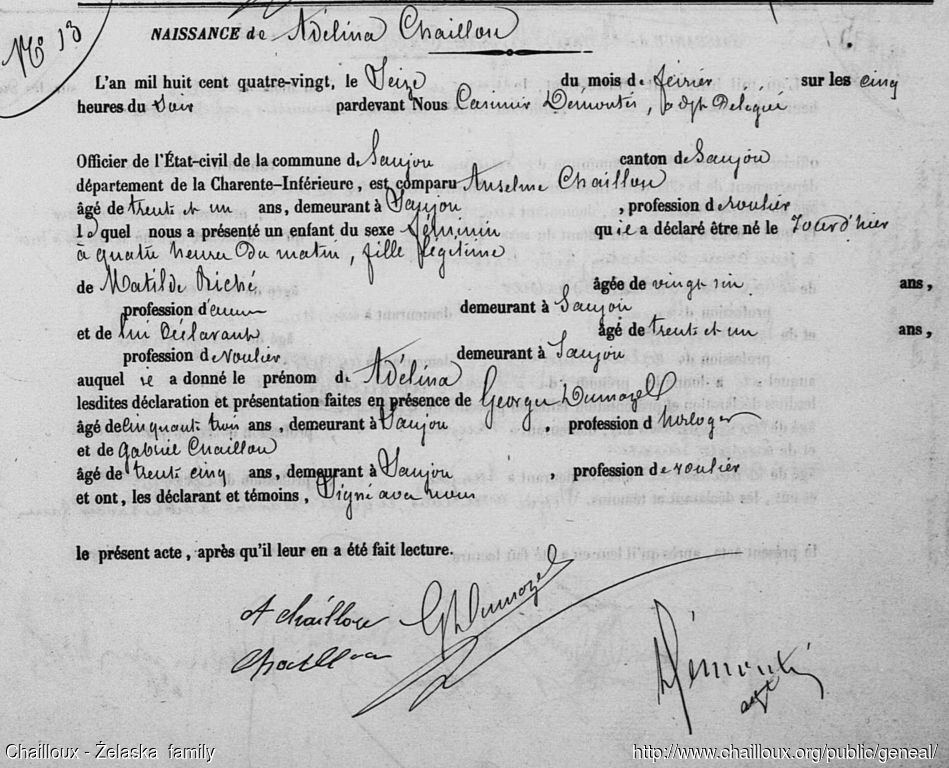 No 13
NAISSANCE de Adélina Chaillou
L'an mil huit cent quatre-vingt, le Seize du mois de février sur les cinq
heures du Soir pardevant Nous Casimir Démontis, adjt Délégué
Officier de l'État-civil de la commune de Saujon canton de Saujon
département de la Charente-Inférieure, est comparu Anselme Chaillou
âgé de trente et un ans, demeurant à Saujon, profession de roulier
lequel nous a présenté un enfant du sexe féminin qu'il a déclaré être né le Jourd'hier
a quatre heures du matin, fille légitime
de Matilde Riché âgée de vingt six ans,
profession d'aucune demeurant à Saujon
et de lui Déclarant âgé de trente et un ans,
profession de roulier demeurant à Saujon
auquel il a donné le prénom de Adélina
lesdites déclaration et présentation faites en présence de George Dumazel
âgé de cinquante trois ans, demeurant à Saujon, profession d'horloger
et de Gabriel Chaillou
âgé de trente cinq ans, demeurant à Saujon, profession de roulier
et ont, les déclarant et témoins, Signé avec nous
le présent acte, après qu'il leur en a été fait lecture.
A Chaillou G Dumazel
Chaillou Démontis
adjt
Chailloux - Želaska family http://www.chailloux.org/public/geneal/